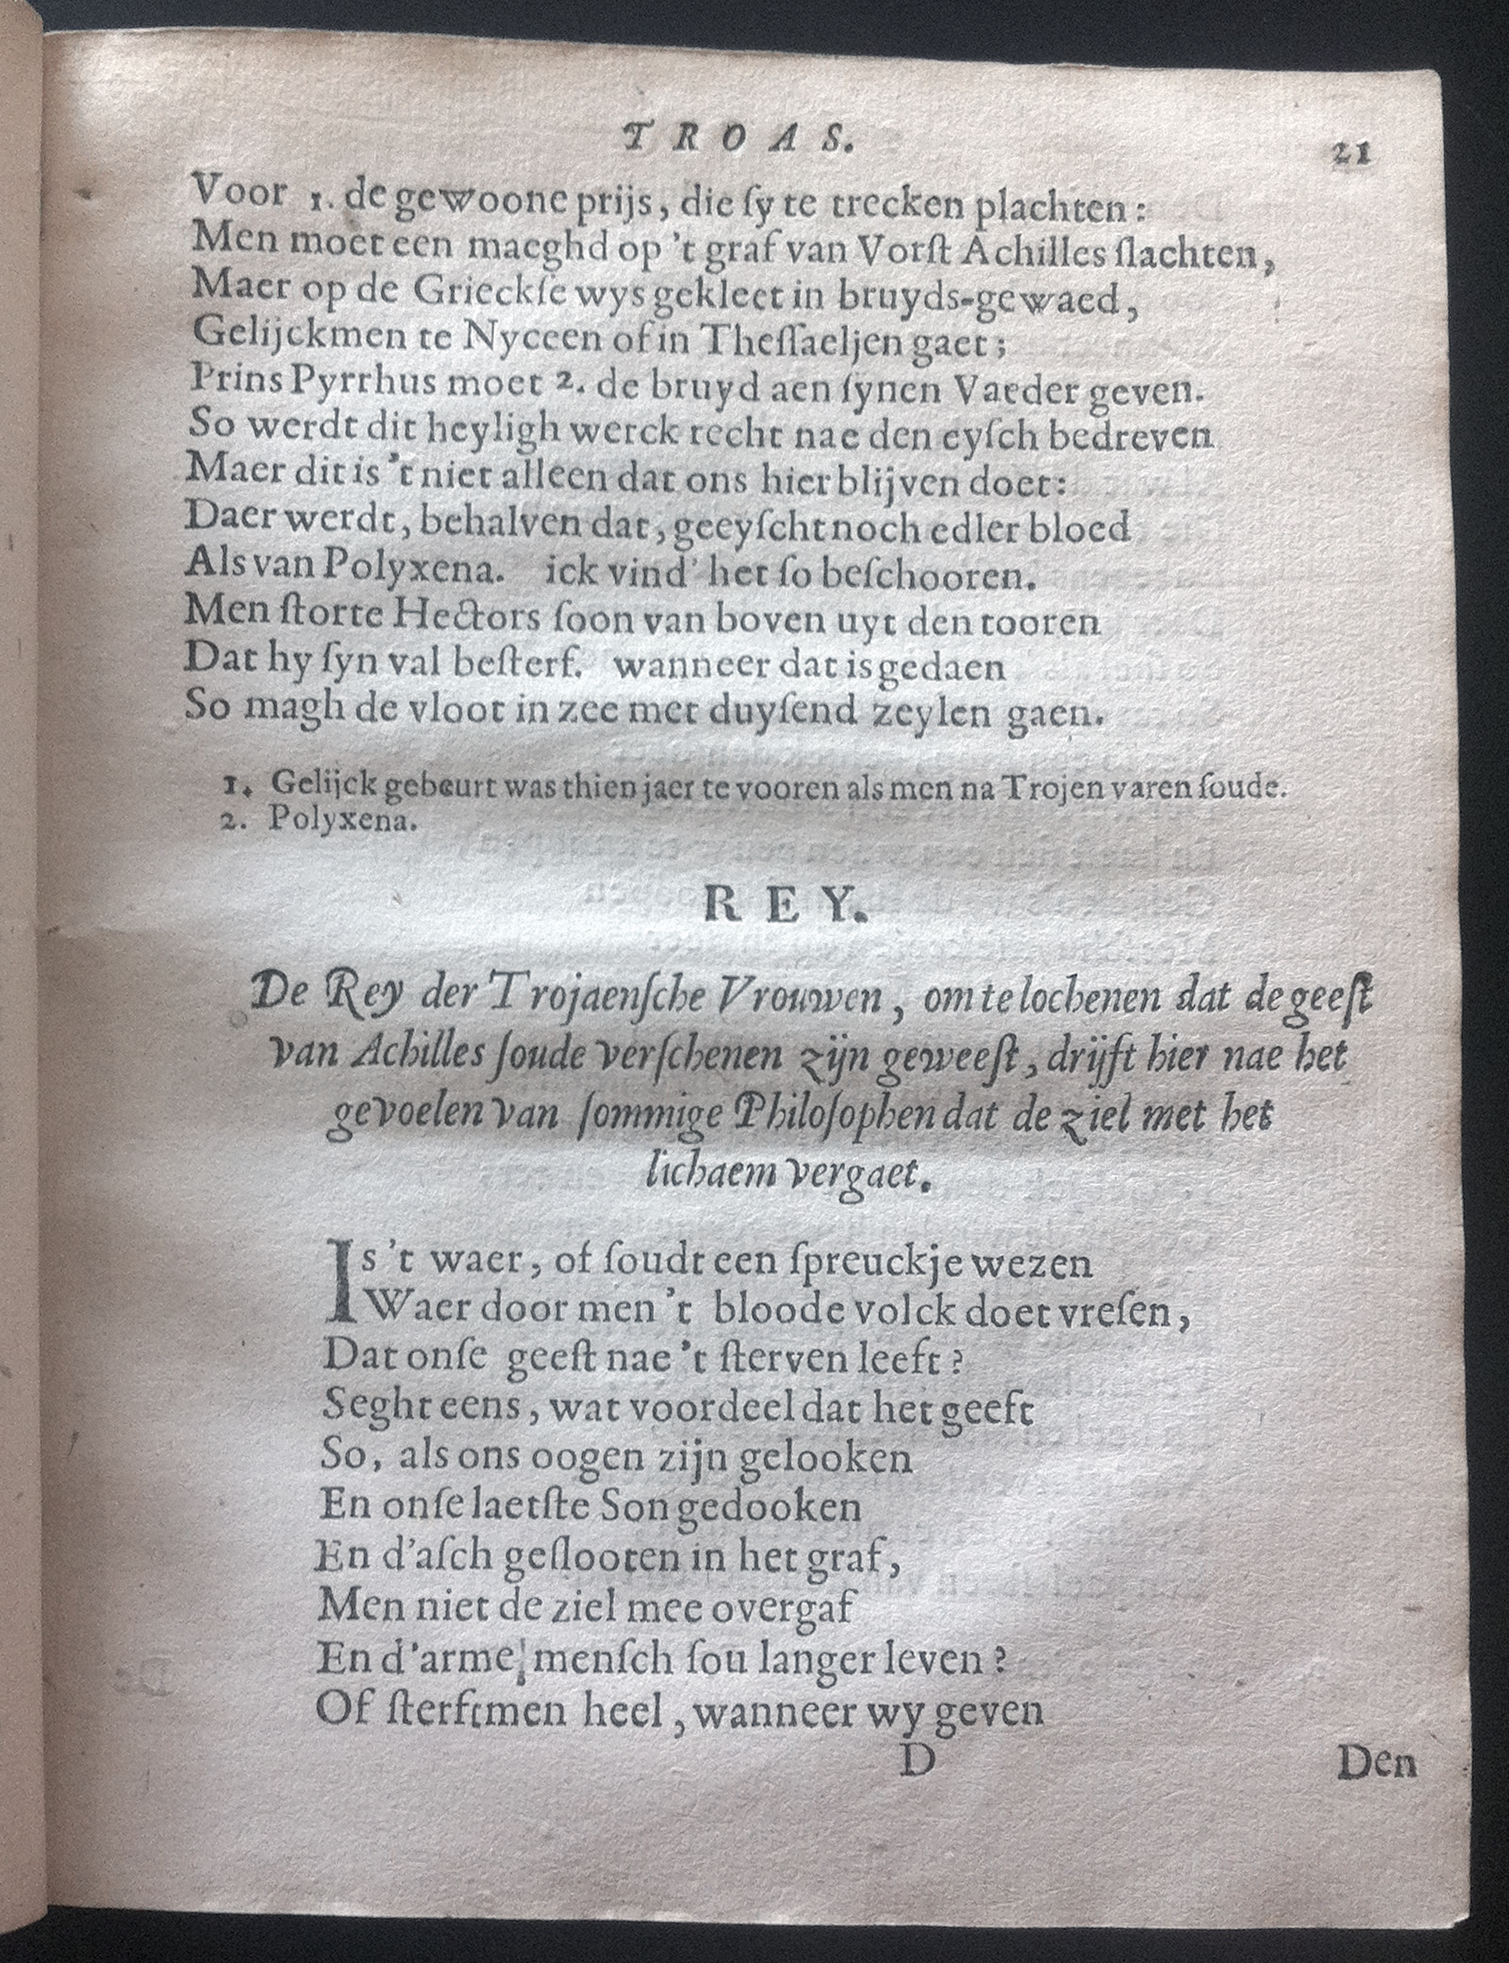 TROAS. 21
Voor 1. de gewoone prijs, die ſy te trecken plachten:
Men moet een maeghd op 't graf van Vorſt Achilles ſlachten,
Maer op de Grieckſe wys gekleet in bruyds-gewaed,
Gelijckmen te Nyceen of in Theſſaeljen gaet;
Prins Pyrrhus moet 2. de bruyd aen ſynen Vaeder geven.
So werdt dit heyligh werck recht nae den eyſch bedreven
Maer dit is 't niet alleen dat ons hier blijven doet:
Daer werdt, behalven dat, geeyſcht noch edler bloed
Als van Polyxena. ick vind' het ſo beſchooren.
Men ſtorte Hectors ſoon van boven uyt den tooren
Dat hy ſyn val beſterf. wanneer dat is gedaen
So magh de vloot in zee met duyſend zeylen gaen.
1. Gelijck gebeurt was thien jaer te vooren als men na Trojen varen ſoude.
2. Polyxena.
REY.
De Rey der Trojaenſche Vrouwen, om te lochenen dat de geeſt
van Achilles ſoude verſchenen zijn geweeſt, drijft hier nae het
gevoelen van ſommige Philoſophen dat de ziel met het
lichaem vergaet.
Is 't waer, of ſoudt een ſpreuckje wezen
Waer door men 't bloode volck doet vreſen,
Dat onſe geeſt nae 't ſterven leeft?
Seght eens, wat voordeel dat het geeft
So, als ons oogen zijn gelooken
En onſe laetſte Son gedooken
En d'aſch geſlooten in het graf,
Men niet de ziel mee overgaf
En d'arme menſch ſou langer leven?
Of ſterftmen heel, wanneer wy geven
D Den